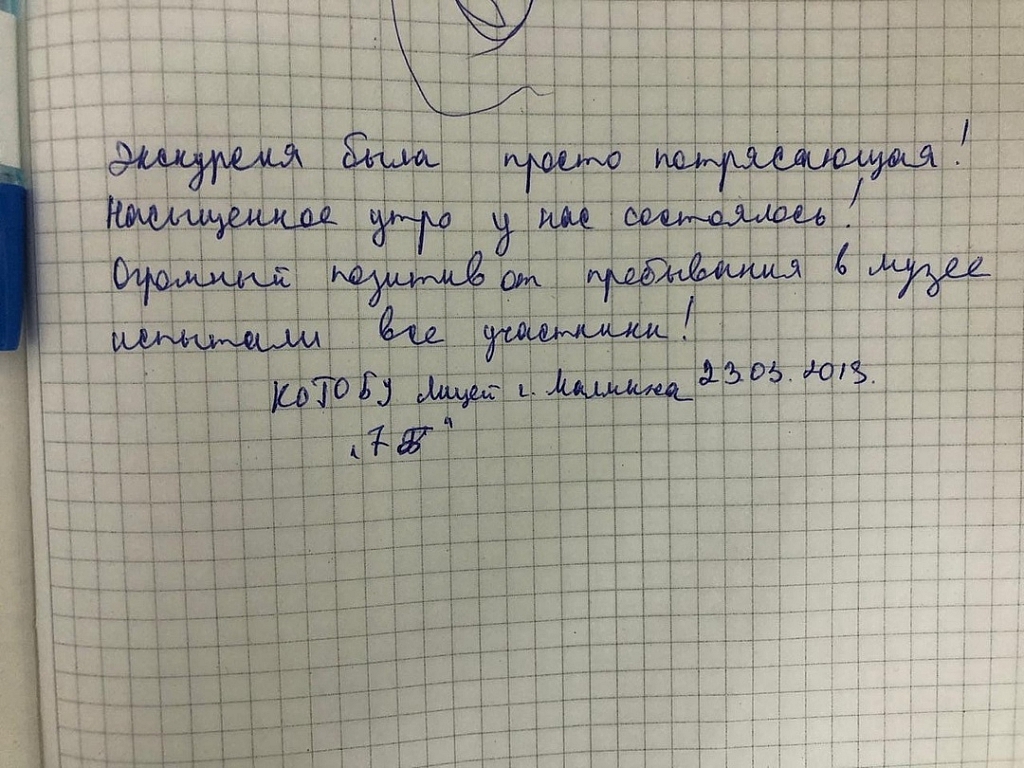 Экскурсия была просто потрясающая!
Насыщенное утро у нас состоялось!
Огромный позитив от пребывания в музее
испытали все участники!
КОГОБУ Лицей г. Малмыжа 23.03.2019.
"7 "